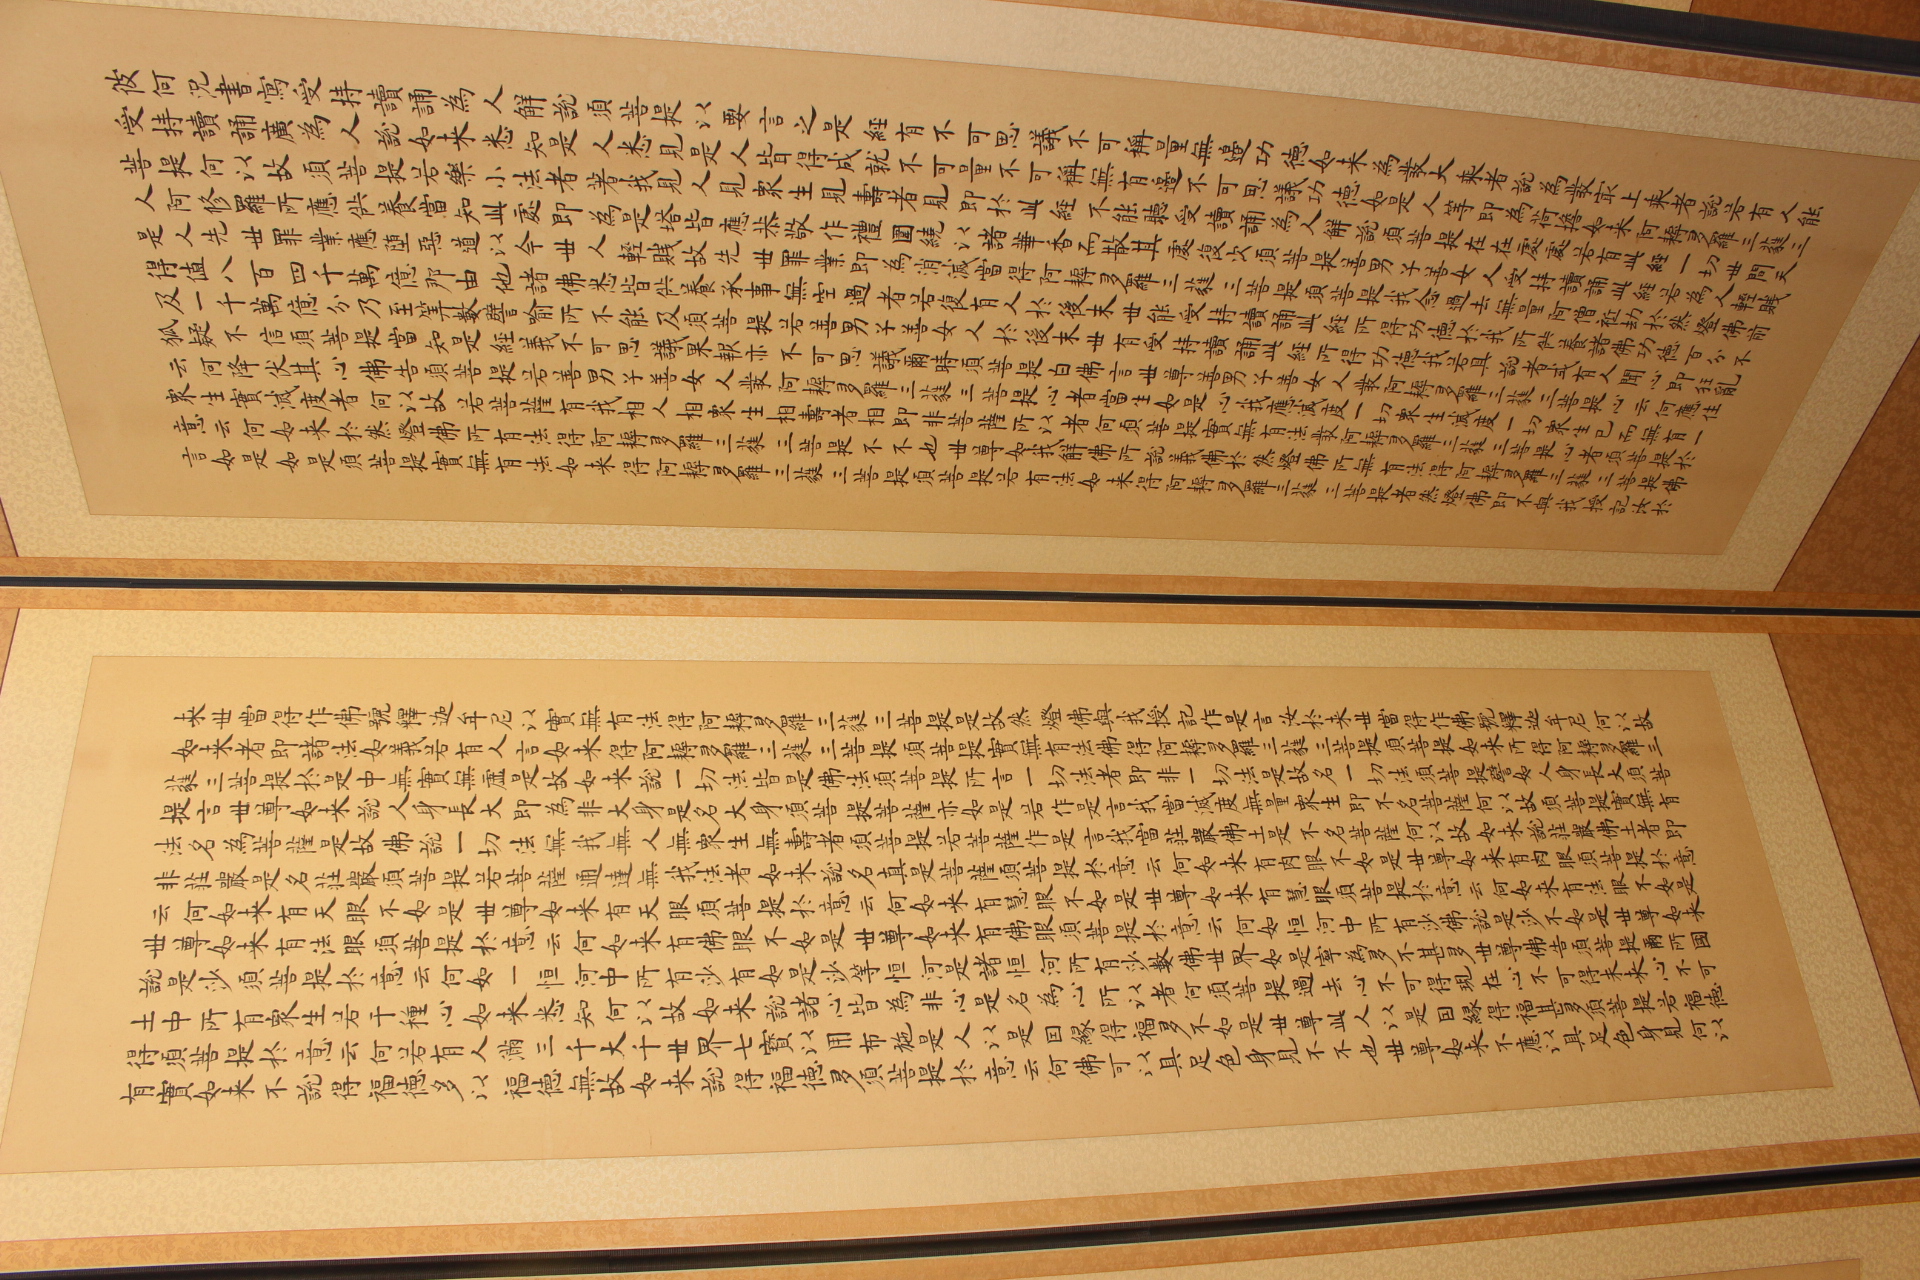 彼何況書寫受持讀誦為人解說須菩提以要言之是經有不可思議不可稱量無邊功德如来為發大乘者說為發最上乘者說若有人能
受持讀誦廣為人說如来悉知是人悉見是人皆得成就不可量不可稱無有邊不可思議功德如是人等即為荷擔如来阿耨多羅三藐三
菩提何以故須菩提若樂小法者著我見人見眾生見壽者見即於此經不能聽受讀誦為人解說須菩提在在處處若有此經一切世間天
人阿修羅所應供養當知此處即為是塔皆應恭敬作禮圍繞以諸華香而散其處復次須菩提善男子善女人受持讀誦此經若為人輕賤
是人先世罪業應墮惡道以今世人輕賤故先世罪業即為消滅當得阿耨多羅三藐三菩提須菩提我念過去無量阿僧祇劫於然燈佛前
得值八百四千萬億那由他諸佛悉皆供養承事無空過者若復有人於後末世能受持讀誦此經所得功德於我所供養諸佛功德百分不
及一千萬億分乃至筭數譬喻所不能及須菩提若善男子善女人於後末世有受持讀誦此經所得功德我若具說者或有人聞心即狂亂
狐疑不信須菩提當知是經義不可思議果報亦不可思議爾時須菩提白佛言世尊善男子善女人發阿耨多羅三藐三菩提心云何應住
云何降伏其心佛告須菩提若善男子善女人發阿耨多羅三藐三菩提心者當生如是心我應滅度一切眾生滅度一切眾生已而無有一
眾生實滅度者何以故若菩薩有我相人相眾生相壽者相即非菩薩所以者何須菩提實無有法發阿耨多羅三藐三菩提心者須菩提於
意云何如来於然燈佛所有法得阿耨多羅三藐三菩提不不也世尊如我解佛所說義佛於然燈佛所無有法得阿耨多羅三藐三菩提佛
言如是如是須菩提實無有法如来得阿耨多羅三藐三菩提須菩提若有法如来得阿耨多羅三藐三菩提者然燈佛即不與我授記汝於
来世當得作佛號釋迦牟尼以實無有法得阿耨多羅三藐三菩提是故然燈佛與我授記作是言汝於来世當得作佛號釋迦牟尼何以故
如来者即諸法如義若有人言如来得阿耨多羅三藐三菩提須菩提實無有法佛得阿耨多羅三藐三菩提須菩提如来所得阿耨多羅三
藐三菩提於是中無實無虛是故如来說一切法皆是佛法須菩提所言一切法者即非一切法是故名一切法須菩提譬如人身長大須菩
提言世尊如来說人身長大即為非大身是名大身須菩提菩薩亦如是若作是言我當滅度無量眾生即不名菩薩何以故須菩提實無有
法名為菩薩是故佛說一切法無我無人無眾生無壽者須菩提若菩薩作是言我當莊嚴佛土是不名菩薩何以故如来說莊嚴佛土者即
非莊嚴是名莊嚴須菩提若菩薩通達無我法者如来說名真是菩薩須菩提於意云何如来有肉眼不如是世尊如来有肉眼須菩提於意
云何如来有天眼不如是世尊如来有天眼須菩提於意云何如来有慧眼不如是世尊如来有慧眼須菩提於意云何如来有法眼不如是
世尊如来有法眼須菩提於意云何如来有佛眼不如是世尊如来有佛眼須菩提於意云何如恒河中所有沙佛說是沙不如是世尊如来
說是沙須菩提於意云何如一恒河中所有沙有如是沙等恒河是諸恒河所有沙數佛世界如是寧為多不甚多世尊佛告須菩提爾所國
土中所有眾生若干種心如来悉知何以故如来說諸心皆為非心是名為心所以者何須菩提過去心不可得現在心不可得未来心不可
得須菩提於意云何若有人滿三千大千世界七寶以用布施是人以是因緣得福多不如是世尊此人以是因緣得福甚多須菩提若福德
有實如来不說得福德多以福德無故如来說得福德多須菩提於意云何佛可以具足色身見不不也世尊如来不應以具足色身見何以